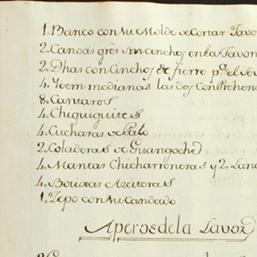 1. Banco con su Molde de Cortar Favo
2. Canoas grs. sin cinchos en la Favon
2. Dhas con Cinchos de fierro pa. el
4. Ydem medianas las dos con
8. Cantaros
4. Chiquiguites
4. Cucharas de Palo
2. Coladeras de Guangoche
4. Mantas Chicharroneras y 2
4. Botixas Azeiteras
1. Zepo con su Candado
Aperos de la